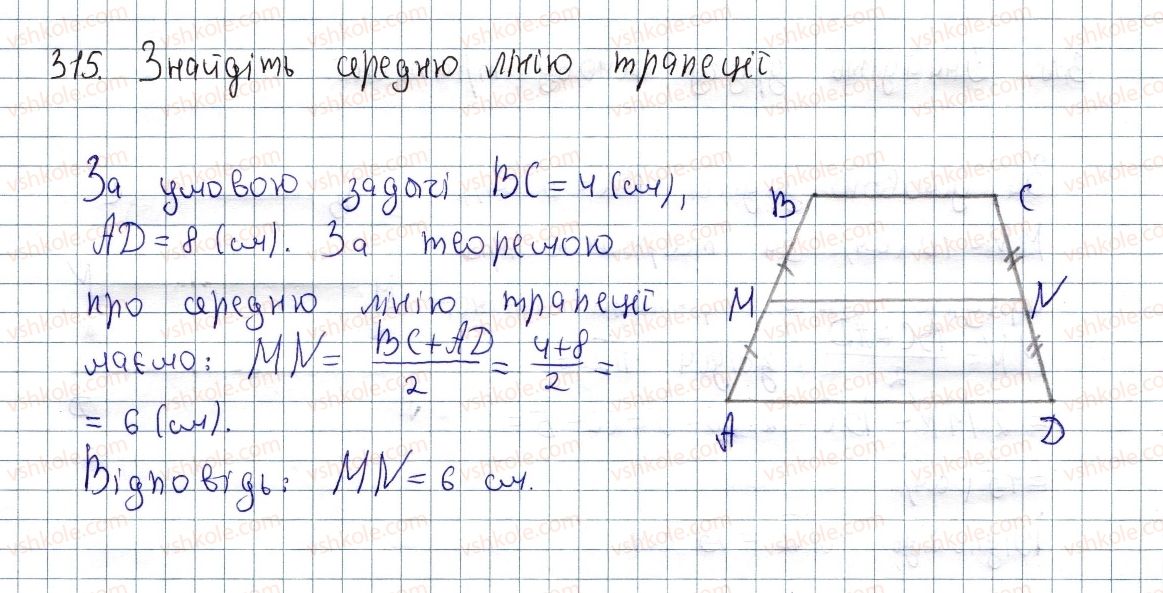 315. Знайдіть середню лінію трапеції
За умовою задачі BC = 4 (см),
AD = 8 (см). За теоремою
про середню лінію трапеції
маємо: MN = (BC + AD)/2 = (4+8)/2 =
= 6 (см).
Відповідь: MN = 6 см.
B C
M N
A D
vshkole.com